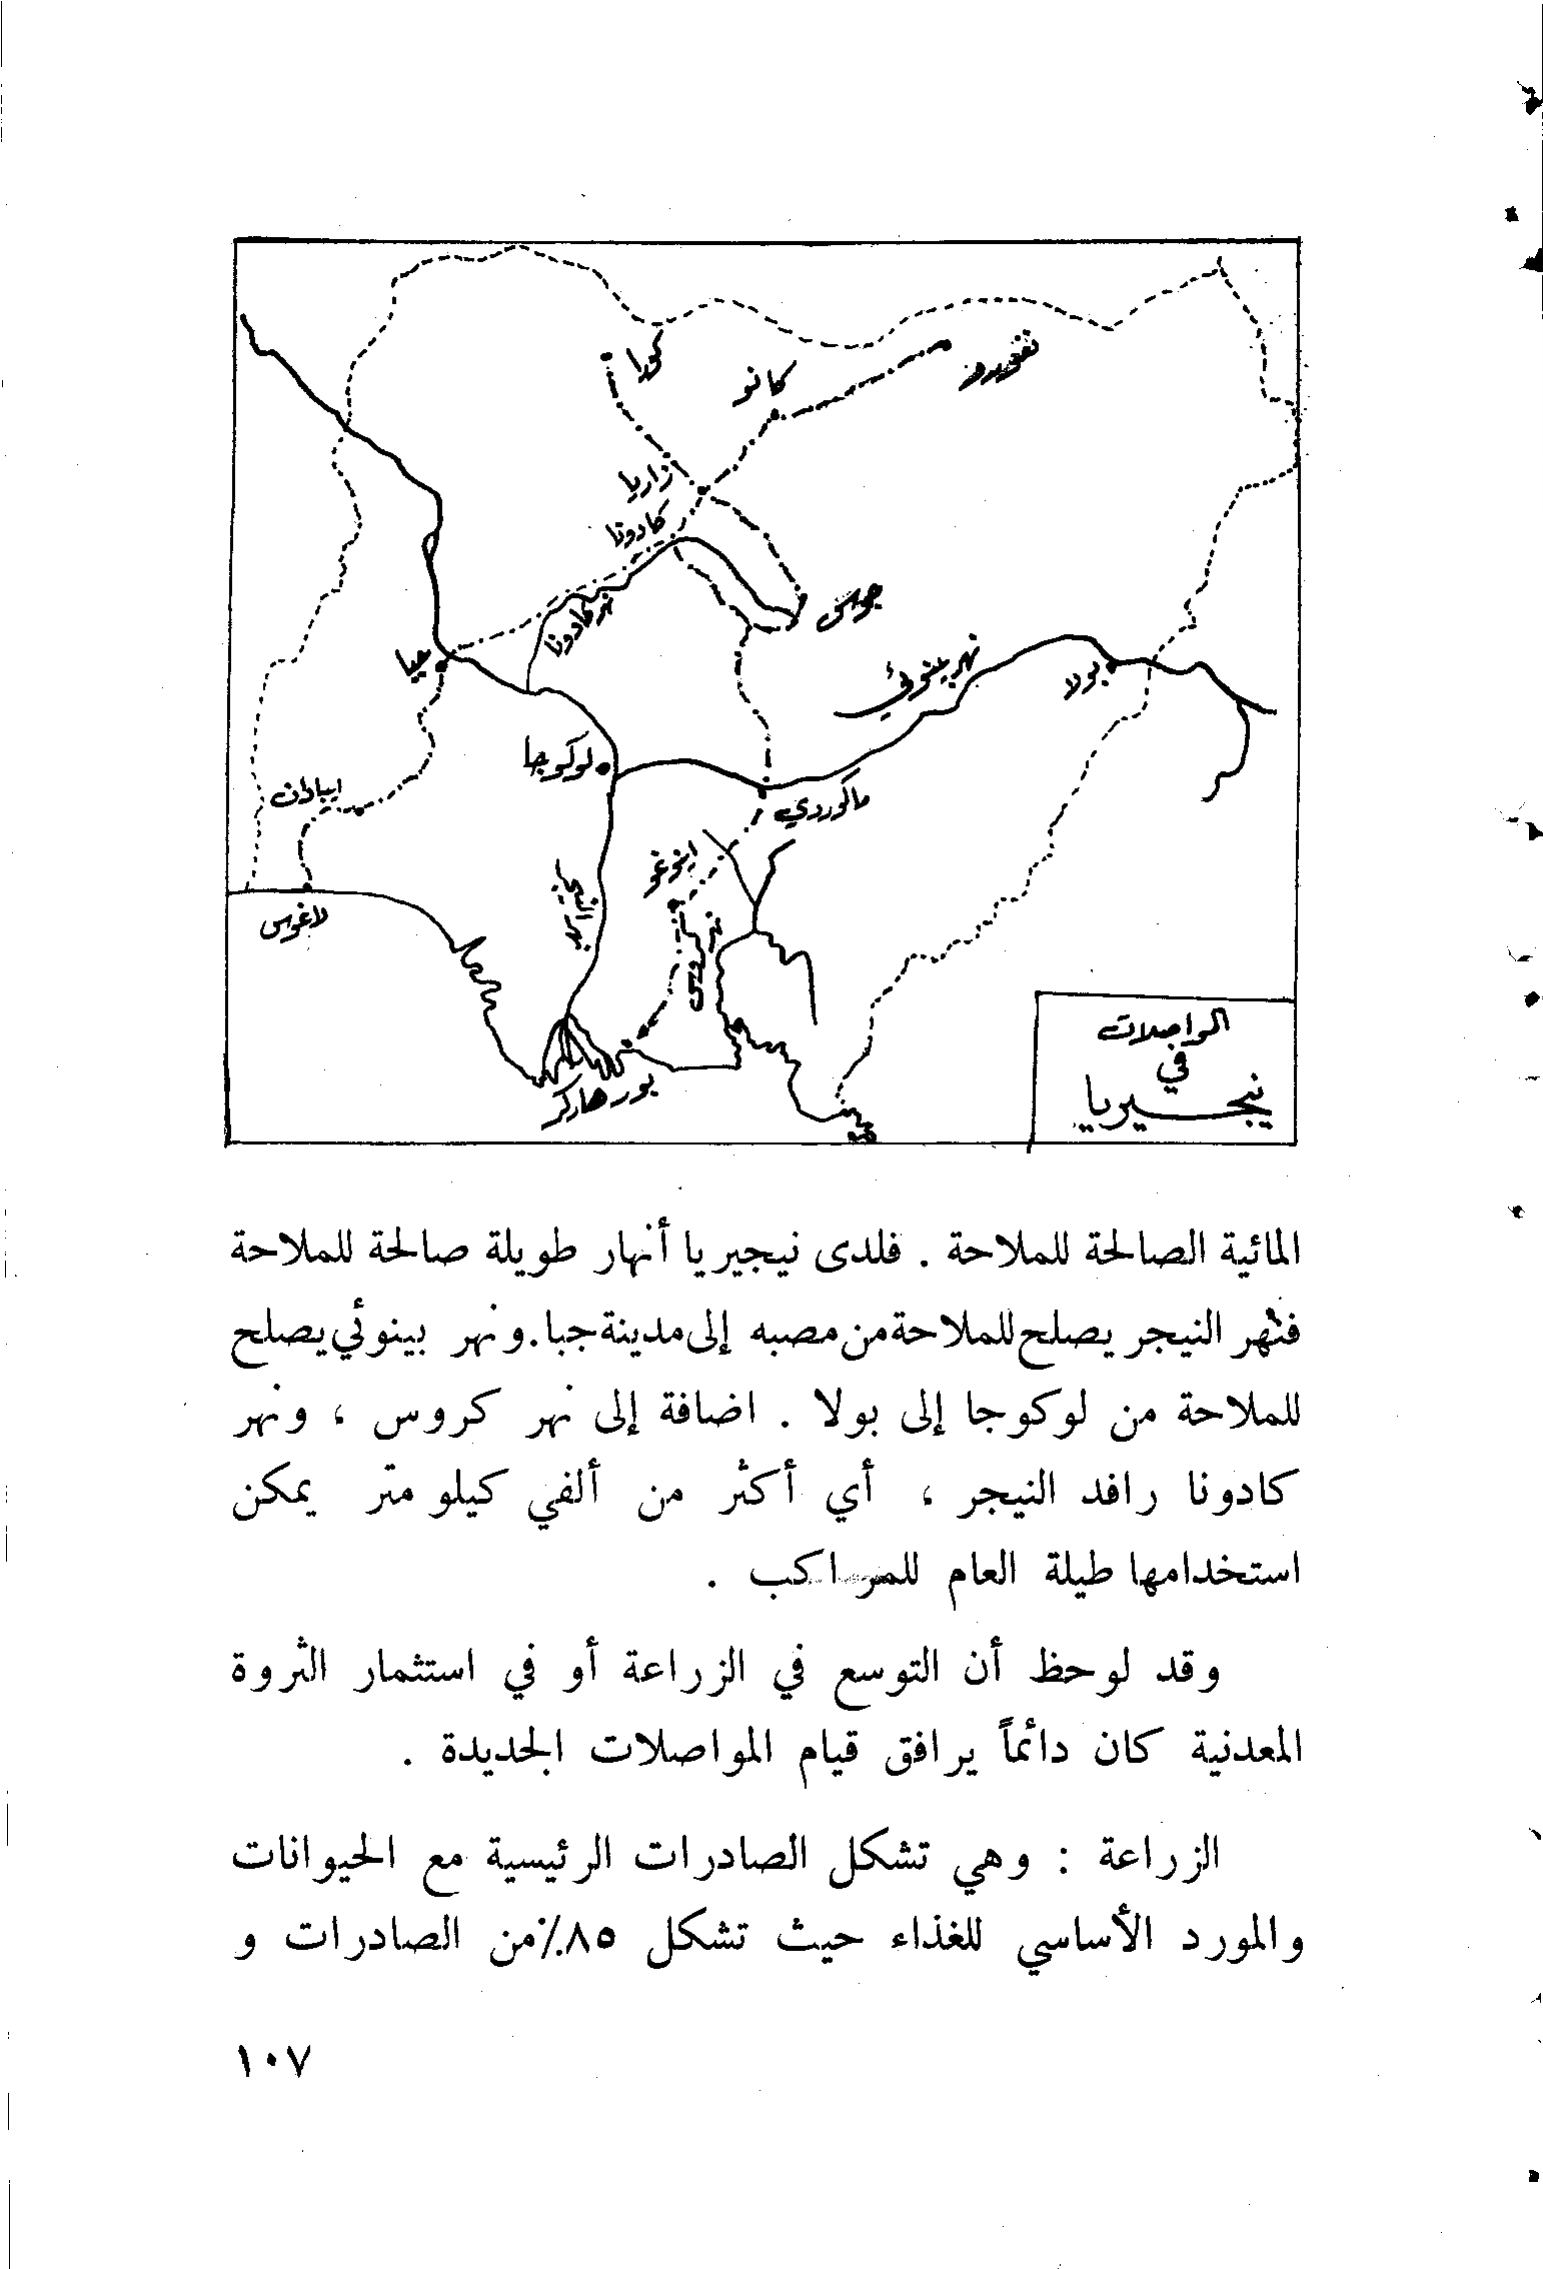 كورا
كانو
نغورو
زاريا
كادونا
نهر كادونا
جوس
جبا
نهر بينوئي
يولا
لوكوجا
ايبادن
ماكوردي
نهر النيجر
لاغوس
بور هاركر
المواصلات
في
نيجيريا
المائية الصالحة للملاحة . فلدى نيجيريا أنهار طويلة صالحة للملاحة
فنهر النيجر يصلح للملاحة من مصبه إلى مدينة جبا . ونهر بينوئي يصلح
للملاحة من لوكوجا إلى بولا . اضافة إلى نهر كروس ، ونهر
كادونا رافد النيجر ، أي أكثر من ألفي كيلو متر يمكن
استخدامها طيلة العام للمراكب .
وقد لوحظ أن التوسع في الزراعة أو في استثمار الثروة
المعدنية كان دائماً يرافق قيام المواصلات الجديدة .
الزراعة : وهي تشكل الصادرات الرئيسية مع الحيوانات
والمورد الأساسي للغذاء حيث تشكل ٨٥٪ من الصادرات و
١٠٧